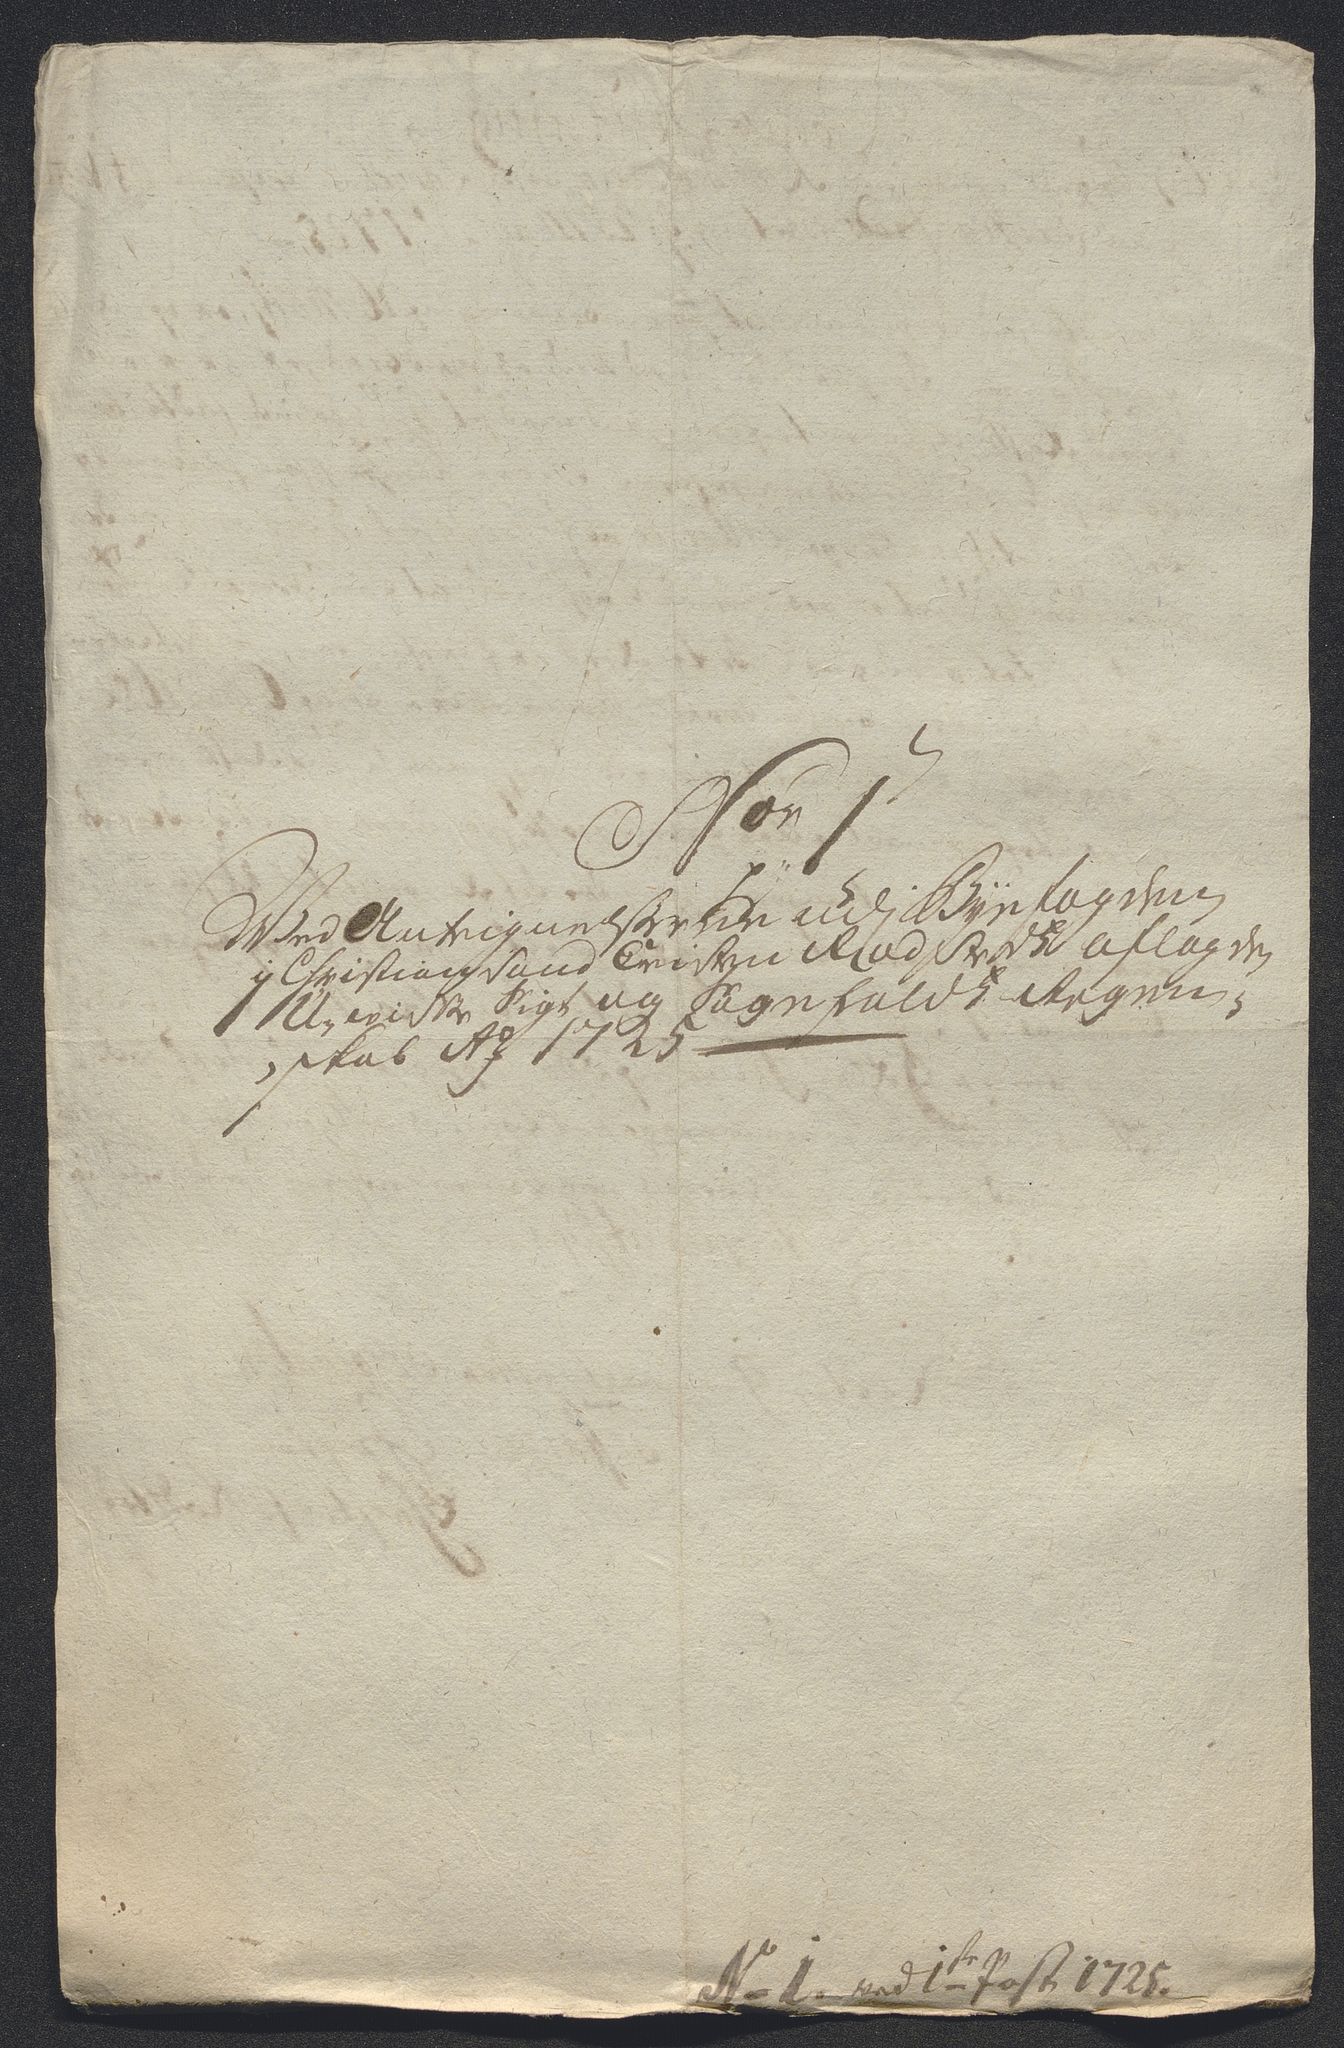 No 1
Ved Anteignelserne udj Byefogden
i Christiansand Christen Madsens aflagde
U-visse Sigt og Sagefalds Regen-
skab Ao 1725
No 1. ved 1ste Post 1725.